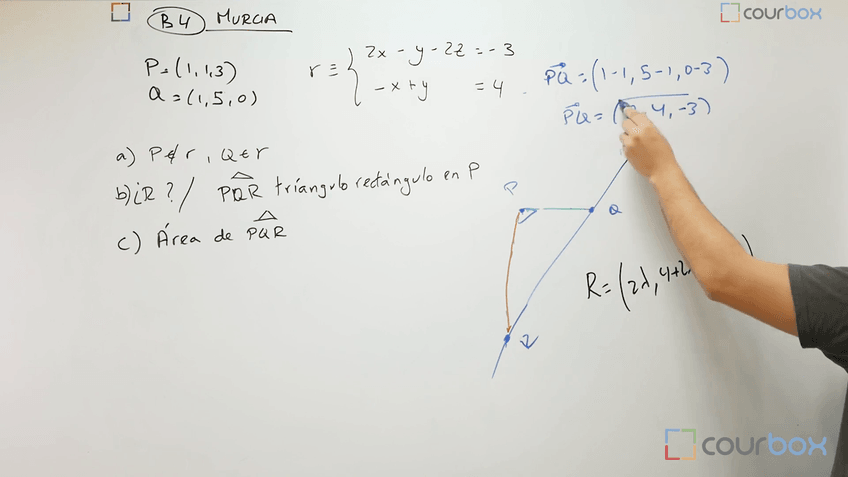 B4 MURCIA
courbox
P=(1,1,3)
Q=(1,5,0)
r≡{2x-y-2z=-3
-x+y =4.
PQ=(1-1,5-1,0-3)
PQ=( ,4,-3)
a) P∉r, Q∈r
b) ¿R?/ PQR triángulo rectángulo en P
c) Área de PQR
P
Q
R=(2λ,4+2
courbox